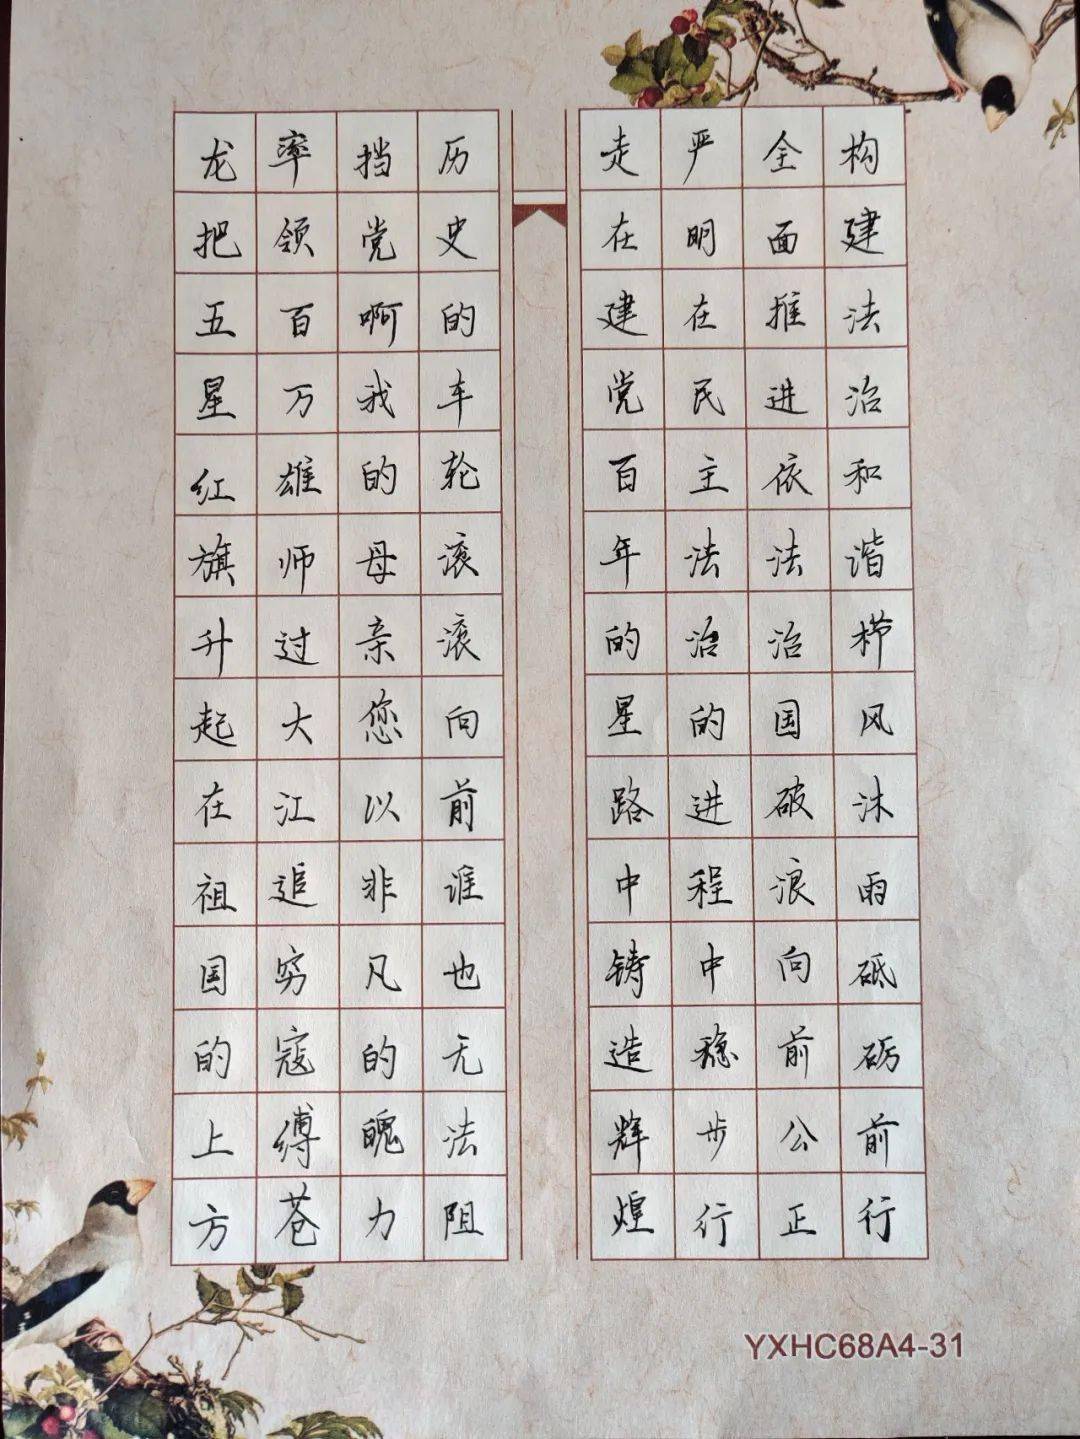 构建法治和谐栉风沐雨砥砺前行
全面推进依法治国破浪向前公正
严明在民主法治的进程中稳步行
走在建党百年的星路中铸造辉煌
历史的车轮滚滚向前谁也无法阻
挡党啊我的母亲您以非凡的魄力
率领百万雄师过大江追穷寇缚苍
龙把五星红旗升起在祖国的上方
YXHC68A4-31